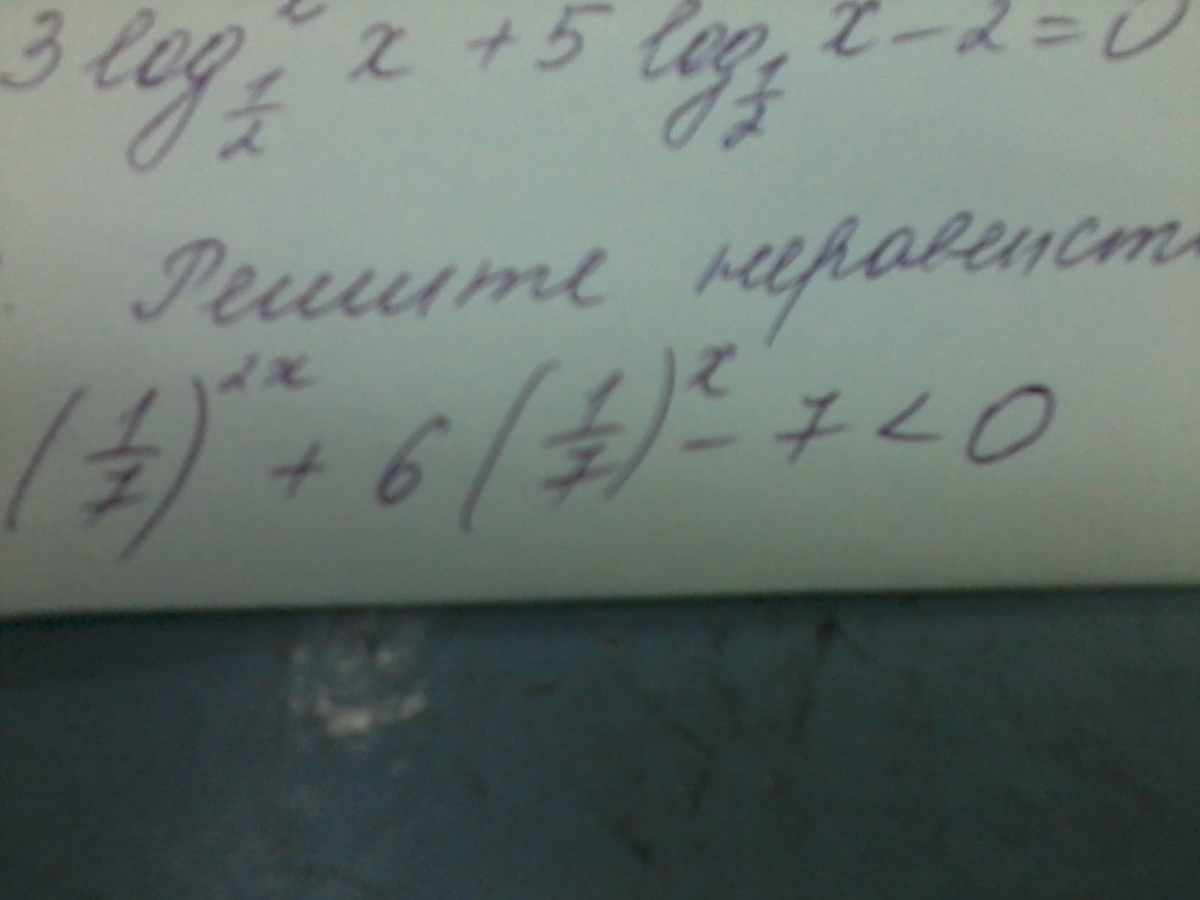 3 log²_{1/2} x + 5 log_{1/2} x - 2 = 0
Решите неравенст
(1/7)^{2x} + 6 (1/7)^x - 7 < 0